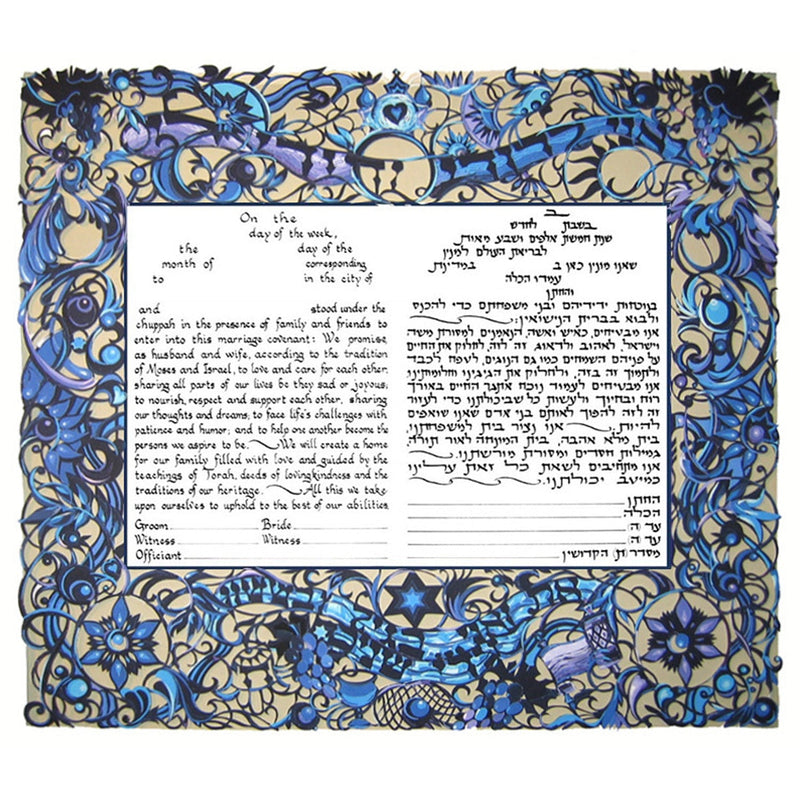 On the
day of the week,
the day of the
month of corresponding
to in the city of
and stood under the
chuppah in the presence of family and friends to
enter into this marriage covenant: We promise,
as husband and wife, according to the tradition
of Moses and Israel, to love and care for each other,
sharing all parts of our lives be they sad or joyous;
to nourish, respect and support each other, sharing
our thoughts and dreams; to face life's challenges with
patience and humor; and to help one another become the
persons we aspire to be. We will create a home
for our family filled with love and guided by the
teachings of Torah, deeds of lovingkindness and the
traditions of our heritage. All this we take
upon ourselves to uphold to the best of our abilities.
Groom Bride
Witness Witness
Officiant
ב
בשבת לחדש
שנת חמשת אלפים ושבע מאות
לבריאת העולם למנין
שאנו מונין כאן ב במדינת
עמדו הכלה
והחתן
בנוכחות ידידיהם ובני משפחתם כדי להכנס
ולבוא בברית הנישואין:
אנו מבטיחים, כאיש ואשה, הנאמנים למסורת משה
וישראל, לאהוב ולדאוג, זה לזה, לחלוק את החיים
על פניהם השמחים כמו גם הנוגים, לטפח לכבד
ולתמוך זה בזה, ולחלוק את הגיגינו וחלומותינו,
אנו מבטיחים לעמוד נוכח אתגר החיים באורך
רוח ובחיוך ולעשות כל שביכולתנו כדי לעזור
זה לזה להפוך לאותם בני אדם שאנו שואפים
להיות; אנו ניצור בית למשפחתנו,
בית מלא אהבה, בית המונחה לאור תורה,
במילות חסדים ומסורת מורשתנו.
אנו מתחיבים לשאת כל זאת עלינו
כמיטב יכולתנו.
החתן
הכלה
עד (ה)
עד (ה)
מסדר (ת) הקדושין